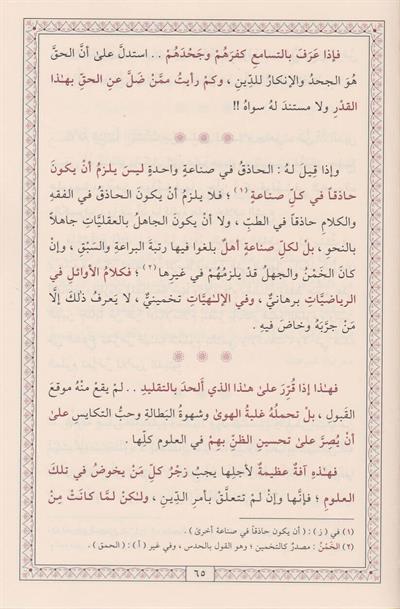 فإذا عَرَفَ بالتسامعِ كفرَهُمْ وجَحْدَهُمْ .. استدلَّ علىٰ أنَّ الحقَّ
هُوَ الجحدُ والإنكارُ للدِّينِ ، وكمْ رأيتُ ممَّنْ ضلَّ عنِ الحقِّ بهـٰذا
القدْرِ ولا مستندَ لهُ سواهُ !!
وإذا قِيلَ لهُ : الحاذقُ في صناعةٍ واحدةٍ ليسَ يلزمُ أنْ يكونَ
حاذقاً في كلِّ صناعةٍ (١) ؛ فلا يلزمُ أنْ يكونَ الحاذقُ في الفقهِ
والكلامِ حاذقاً في الطبِّ ، ولا أنْ يكونَ الجاهلُ بالعقليَّاتِ جاهلاً
بالنحوِ ، بلْ لكلِّ صناعةٍ أهلٌ بلغوا فيها رتبةَ البراعةِ والسَّبْقِ ، وإنْ
كانَ الخَمْنُ والجهلُ قدْ يلزمُهُمْ في غيرِها (٢) ؛ فكلامُ الأوائلِ في
الرياضيَّاتِ برهانيٌّ ، وفي الإلـٰهيَّاتِ تخمينيٌّ ، لا يَعرفُ ذلكَ إلَّا
مَنْ جرَّبَهُ وخاضَ فيهِ .
فهـٰذا إذا قُرِّرَ علىٰ هـٰذا الذي ألحدَ بالتقليدِ .. لمْ يقعْ منْهُ موقعَ
القَبولِ ، بلْ تحملُهُ غلبةُ الهوىٰ وشهوةُ البَطالةِ وحبُّ التكايسِ علىٰ
أنْ يُصِرَّ علىٰ تحسينِ الظنِّ بهِمْ في العلومِ كلِّها .
فهـٰذهِ آفةٌ عظيمةٌ لأجلِها يجبُ زجْرُ كلِّ مَنْ يخوضُ في تلكَ
العلومِ ؛ فإنَّها وإنْ لمْ تتعلَّقْ بأمرِ الدِّينِ ، ولـٰكنْ لمَّا كانَتْ مِنْ
(١) في ( ز ) : ( أن يكون حاذقاً في صناعة أخرىٰ ) .
(٢) الخَمْنُ : مصدرٌ كالتخمين ؛ وهو القول بالحدس ، وفي غير ( أ ) : ( الحمق ) .
٦٥